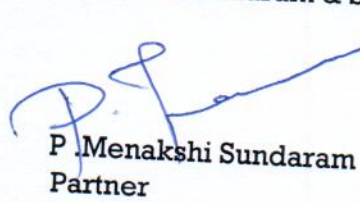 & S
P .Menakshi Sundaram
Partner